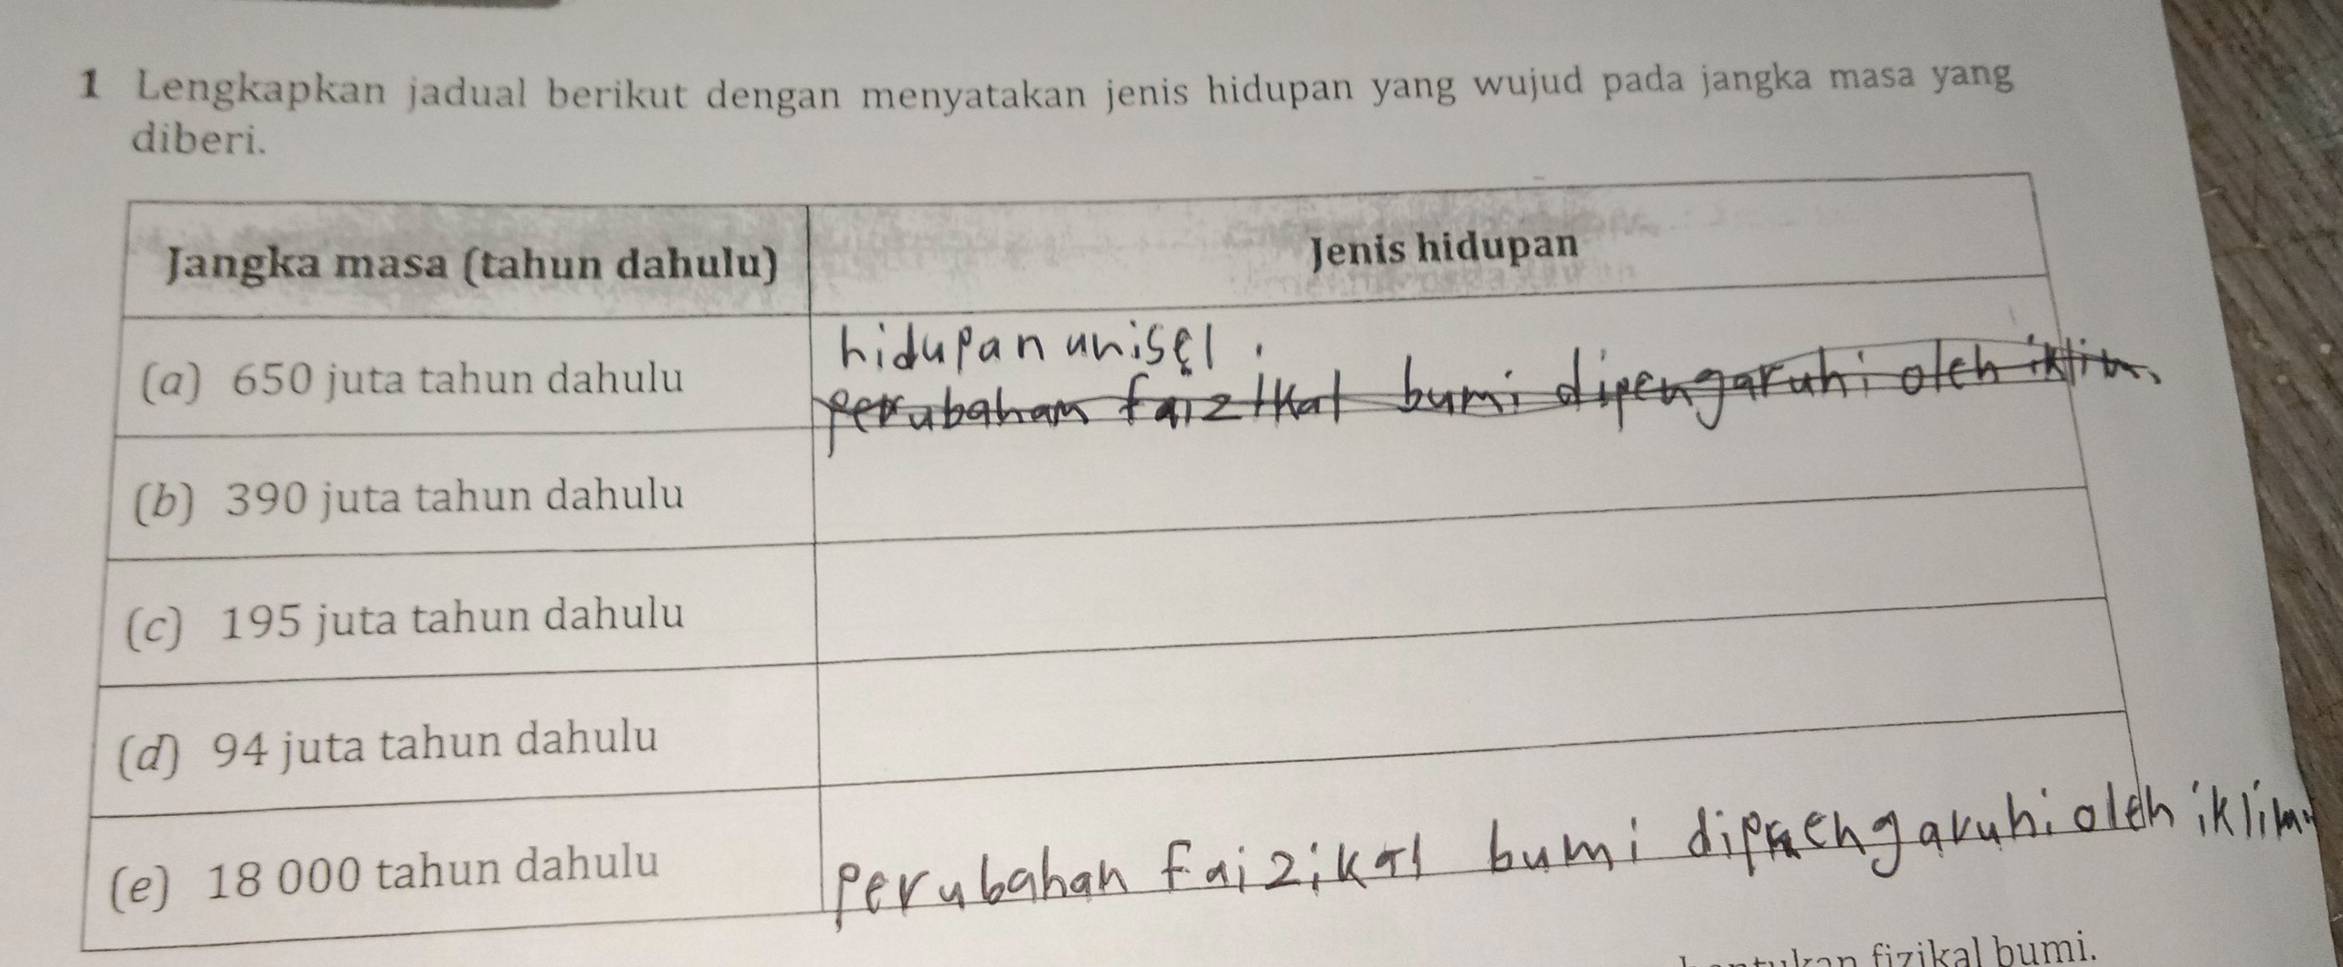 1 Lengkapkan jadual berikut dengan menyatakan jenis hidupan yang wujud pada jangka masa yang
diberi.
Jangka masa (tahun dahulu)
Jenis hidupan
(a) 650 juta tahun dahulu
hidupan unisel.
perubahan faizikal bumi dipengaruhi oleh iklim.
(b) 390 juta tahun dahulu
(c) 195 juta tahun dahulu
(d) 94 juta tahun dahulu
(e) 18 000 tahun dahulu
perubahan Faizikal bumi dipengaruhi oleh iklim.
fizikal bumi.